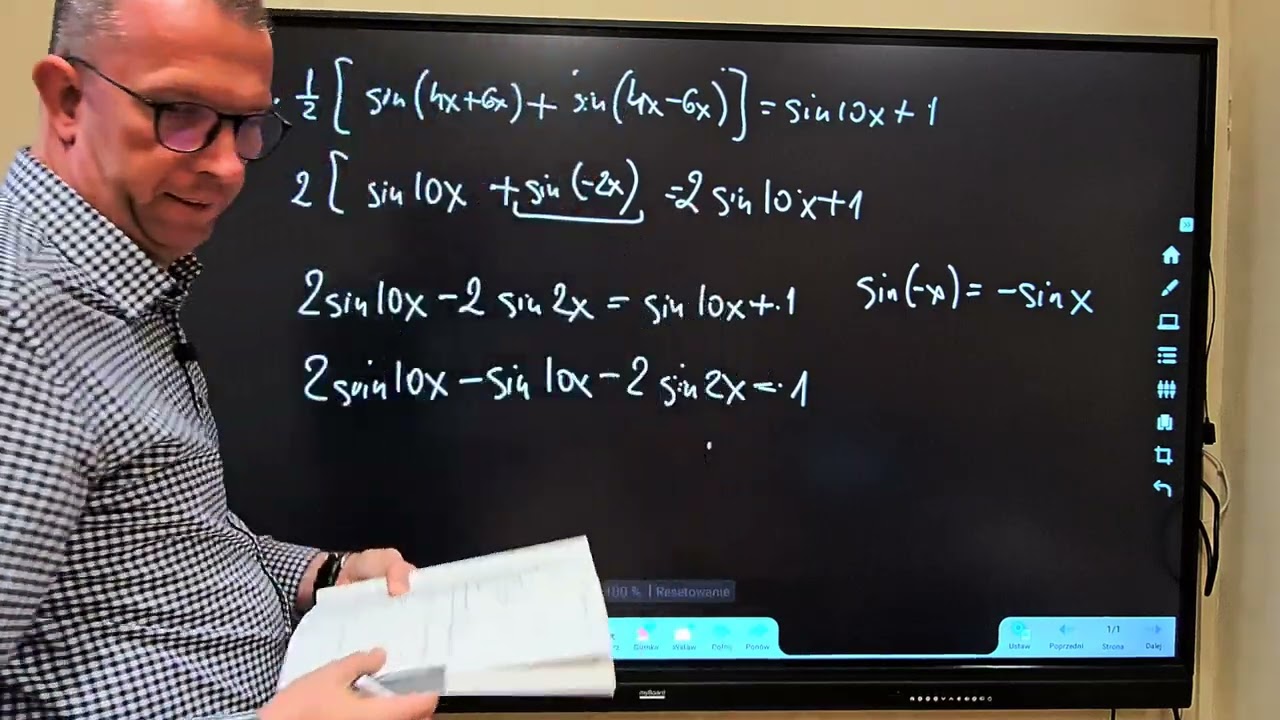 · 1/2 [ sin(4x+6x) + sin(4x-6x) ] = sin10x + 1
2 [ sin 10x + sin (-2x) = 2 sin 10x+1
2sin10x - 2 sin 2x = sin 10x + 1
sin(-x) = -sin x
2sin10x - sin 10x - 2 sin 2x = 1
100 % | Resetowanie
Gumka Wstaw Cofnij Ponów
Ustaw Poprzedni 1/1 Strona Dalej
myBoard